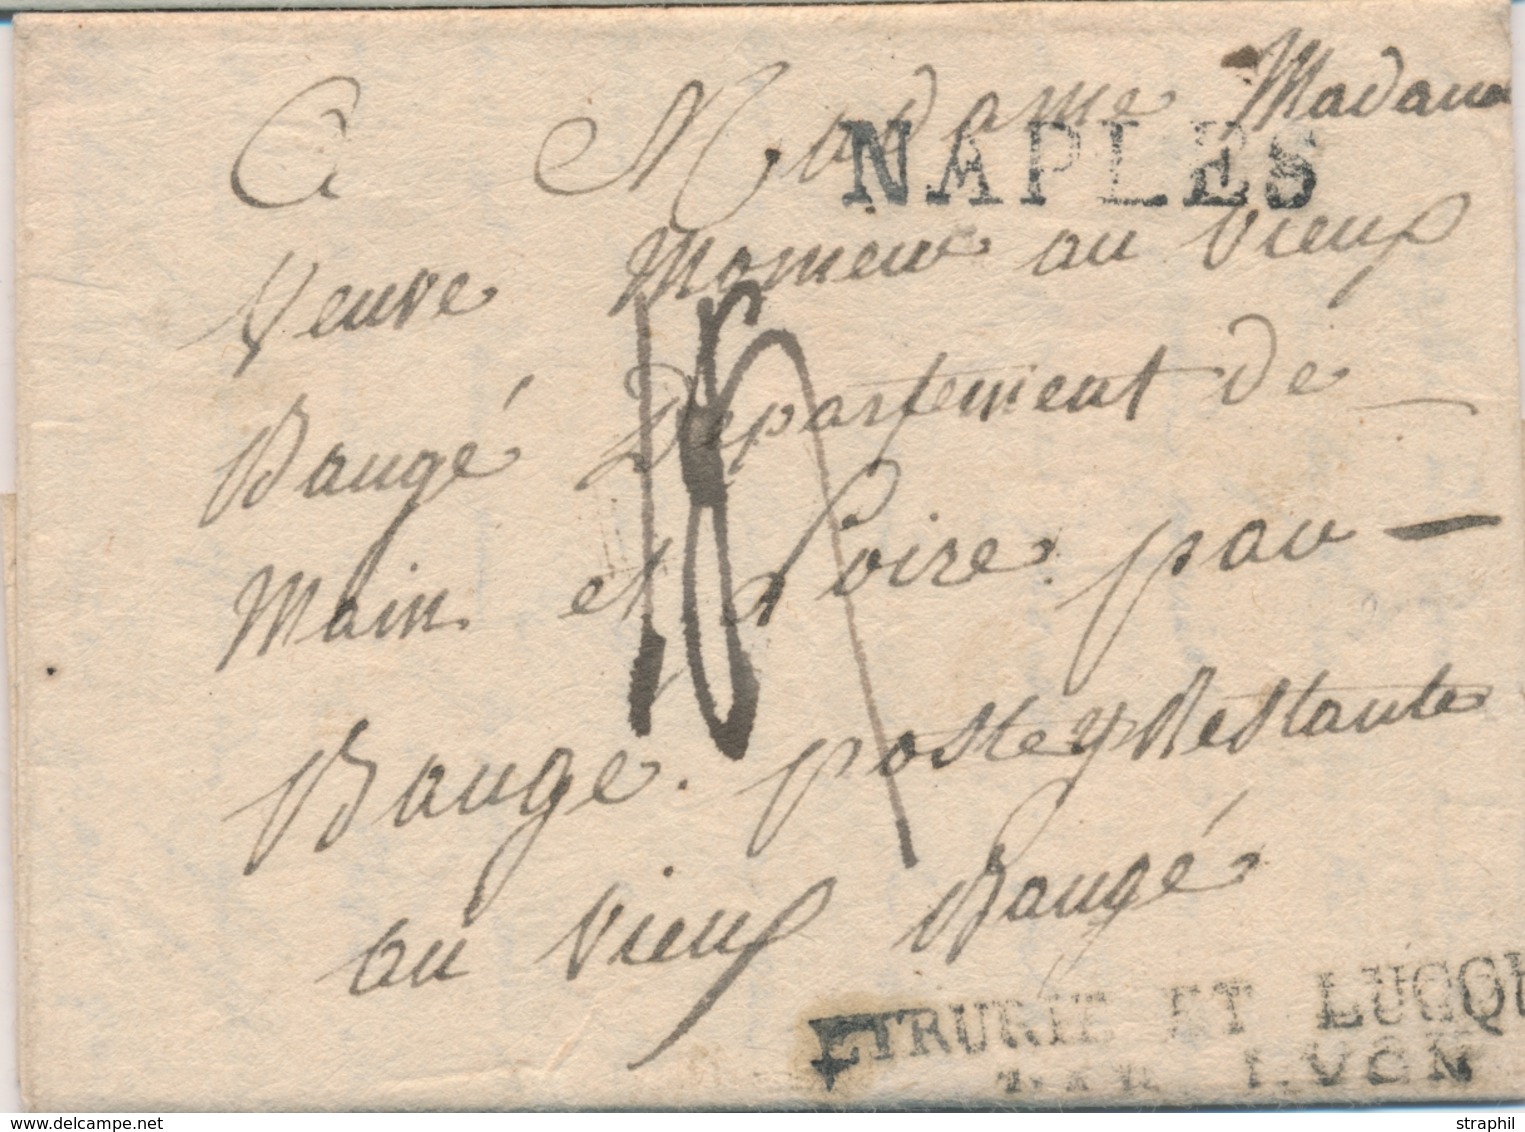 A Madame Madame
NAPLES
Veuve Momeur au vieux
Baugé Département de
Main et Loire par
18
Baugé. poste Restante
au vieux Baugé
ETRURIE ET LUCQU
PAR LYON
strephil